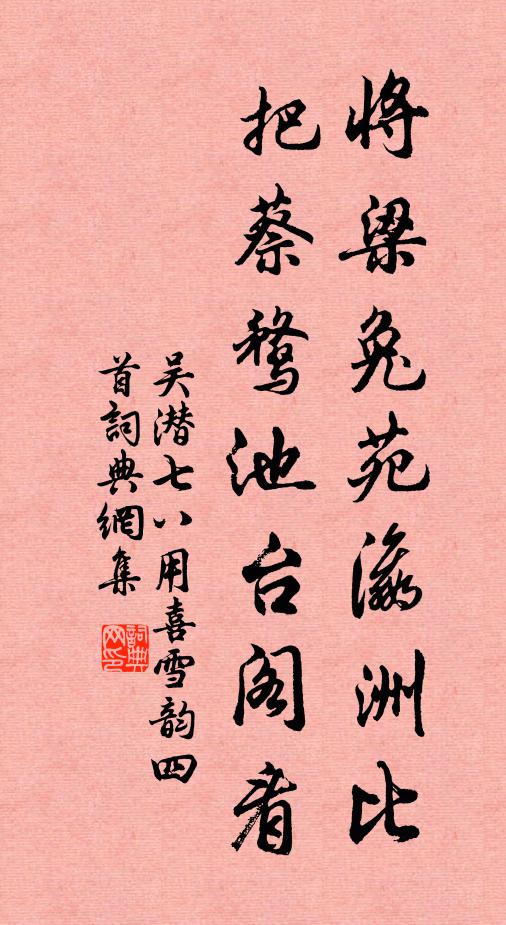 将梁兔苑瀛洲比
把蔡鹜池台阁看
吴潜七八用喜雪韵四
首詞典網集
詞典
网印